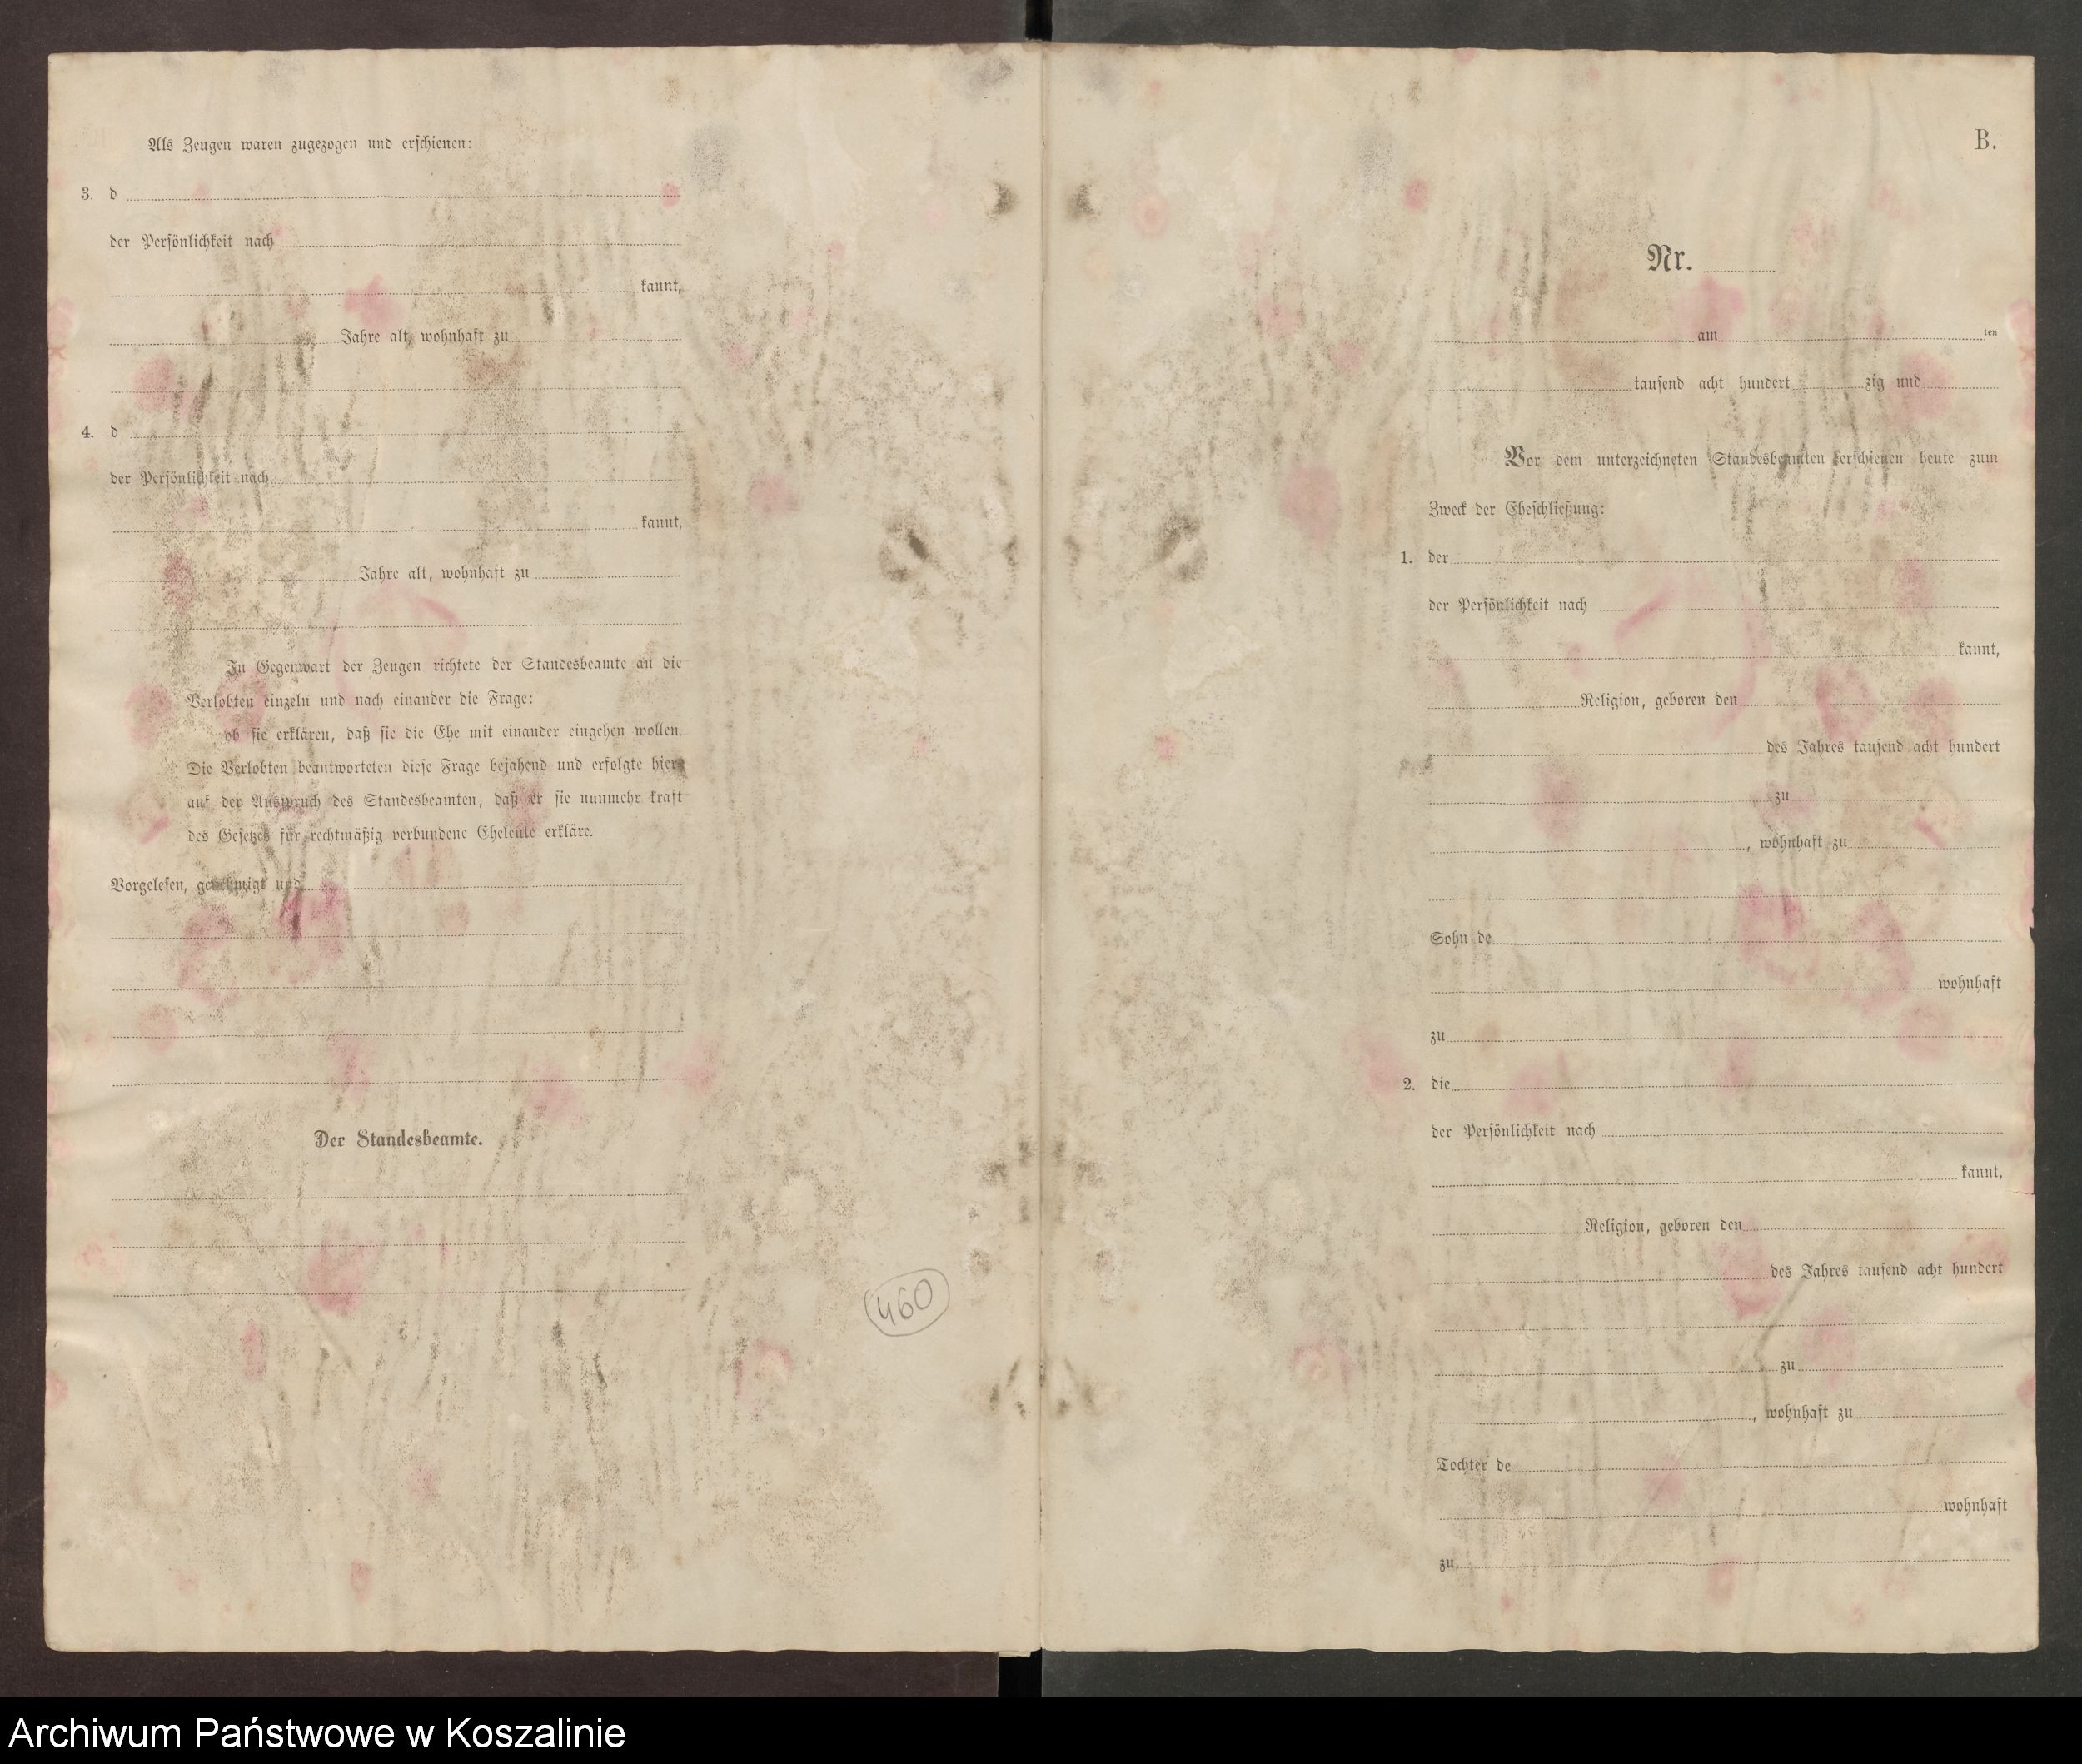 Als Zeugen waren zugezogen und erschienen:
3. d
der Persönlichkeit nach
kannt,
Jahre alt, wohnhaft zu
4. d
der Persönlichkeit nach
kannt,
Jahre alt, wohnhaft zu
In Gegenwart der Zeugen richtete der Standesbeamte an die
Verlobten einzeln und nach einander die Frage:
ob sie erklären, daß sie die Ehe mit einander eingehen wollen.
Die Verlobten beantworteten diese Frage bejahend und erfolgte hier-
auf der Ausspruch des Standesbeamten, daß er sie nunmehr kraft
des Gesetzes für rechtmäßig verbundene Eheleute erkläre.
Vorgelesen, genehmigt und
Der Standesbeamte.
460
B.
Nr.
am ten
tausend acht hundert zig und
Vor dem unterzeichneten Standesbeamten erschienen heute zum
Zweck der Eheschließung:
1. der
der Persönlichkeit nach
kannt,
Religion, geboren den
des Jahres tausend acht hundert
zu
, wohnhaft zu
Sohn de
wohnhaft
zu
2. die
der Persönlichkeit nach
kannt,
Religion, geboren den
des Jahres tausend acht hundert
zu
, wohnhaft zu
Tochter de
wohnhaft
zu
Archiwum Państwowe w Koszalinie